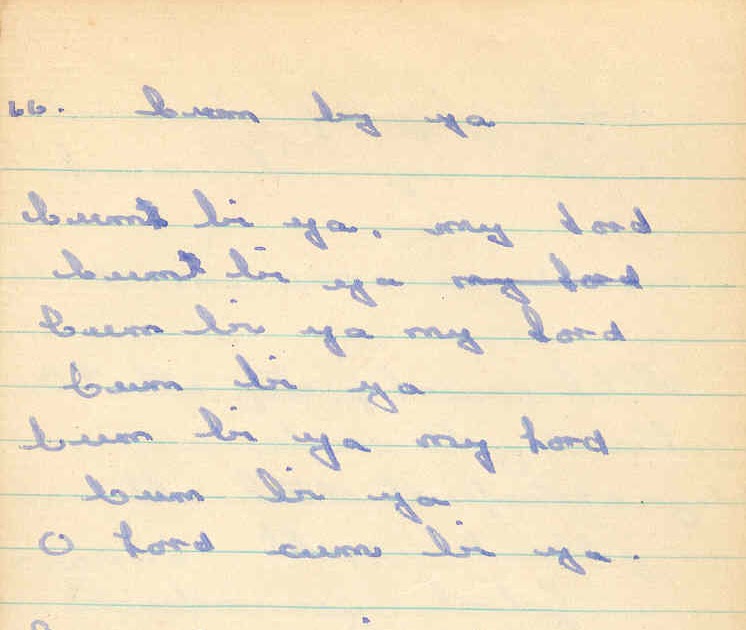 66. Cum by ya
Cum bi ya, my Lord
Cum bi ya my Lord
Cum bi ya my Lord
Cum bi ya
Cum bi ya my Lord
Cum bi ya
O Lord cum bi ya.